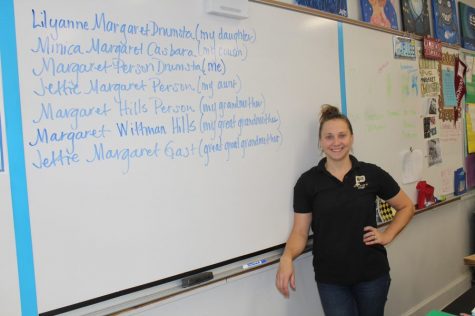 Lilyanne Margaret Drumsta (my daughter)
Minica Margaret Casbara (my cousin)
Margaret Person Drumsta (me)
Jettie Margaret Person (my aunt)
Margaret Hills Person (my grandmother)
Margaret Wittman Hills (my great grandmother)
Jettie Margaret Gast (great great grandmother)